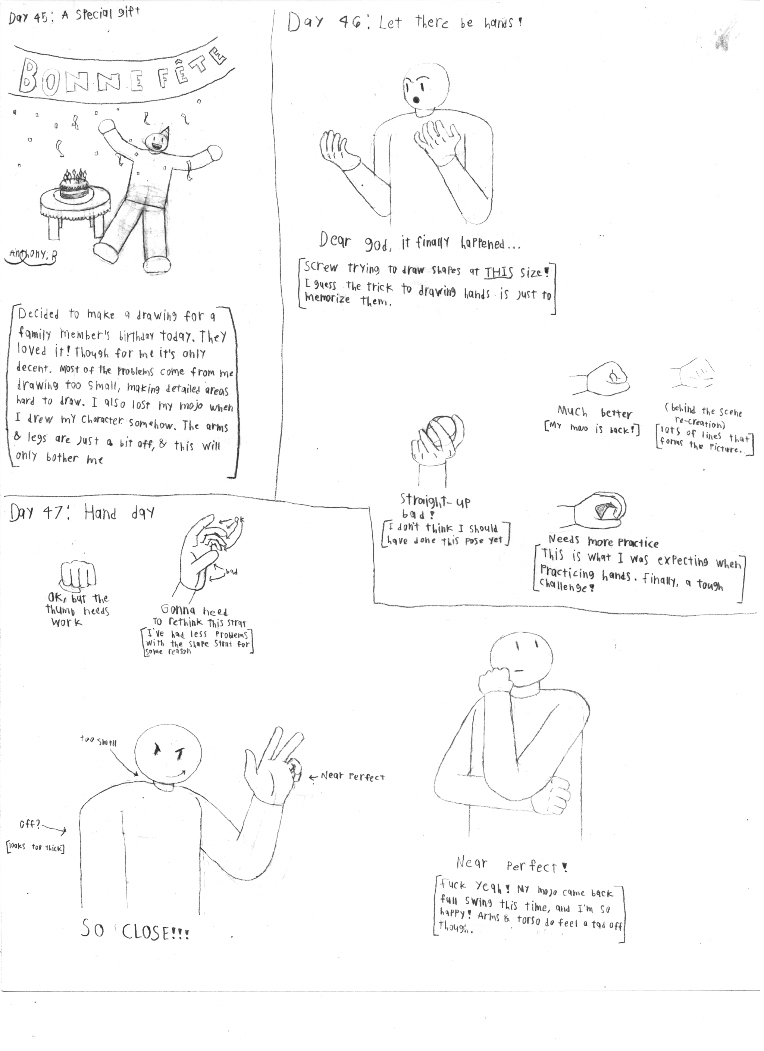 Day 45: A special gift
BONNE FÊTE
Anthony, R
[Decided to make a drawing for a
family member's birthday today. They
loved it! Though for me it's only
decent. Most of the problems come from me
drawing too small, making detailed areas
hard to draw. I also lost my mojo when
I drew my character somehow. The arms
& legs are just a bit off, & this will
only bother me]
Day 46: Let there be hands!
Dear god, it finally happened...
[Screw trying to draw shapes at THIS size!
I guess the trick to drawing hands is just to
memorize them.]
Much better
[My mojo is back!]
(behind the scene
re-creation)
[lots of lines that
forms the picture.]
Straight-up
bad!
[I don't think I should
have done this pose yet]
Needs more practice
[This is what I was expecting when
practicing hands. Finally, a tough
challenge!]
Day 47: Hand day
OK, but the
thumb needs
work
ok
bad
Gonna need
to rethink this strat
[I've had less problems
with the shape strat for
some reason]
too small
Near perfect
Off?
[looks too thick]
SO CLOSE!!!
Near perfect!
[Fuck yeah! My mojo came back
full swing this time, and I'm so
happy! Arms & torso do feel a tad off
though.]